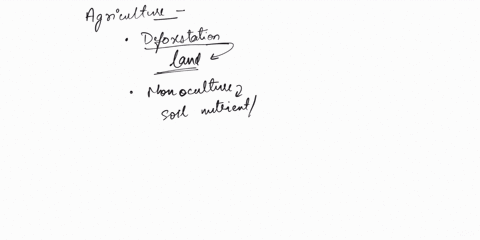 Agriculture -
• Deforstation
land
• Monoculture
soil nutrient/